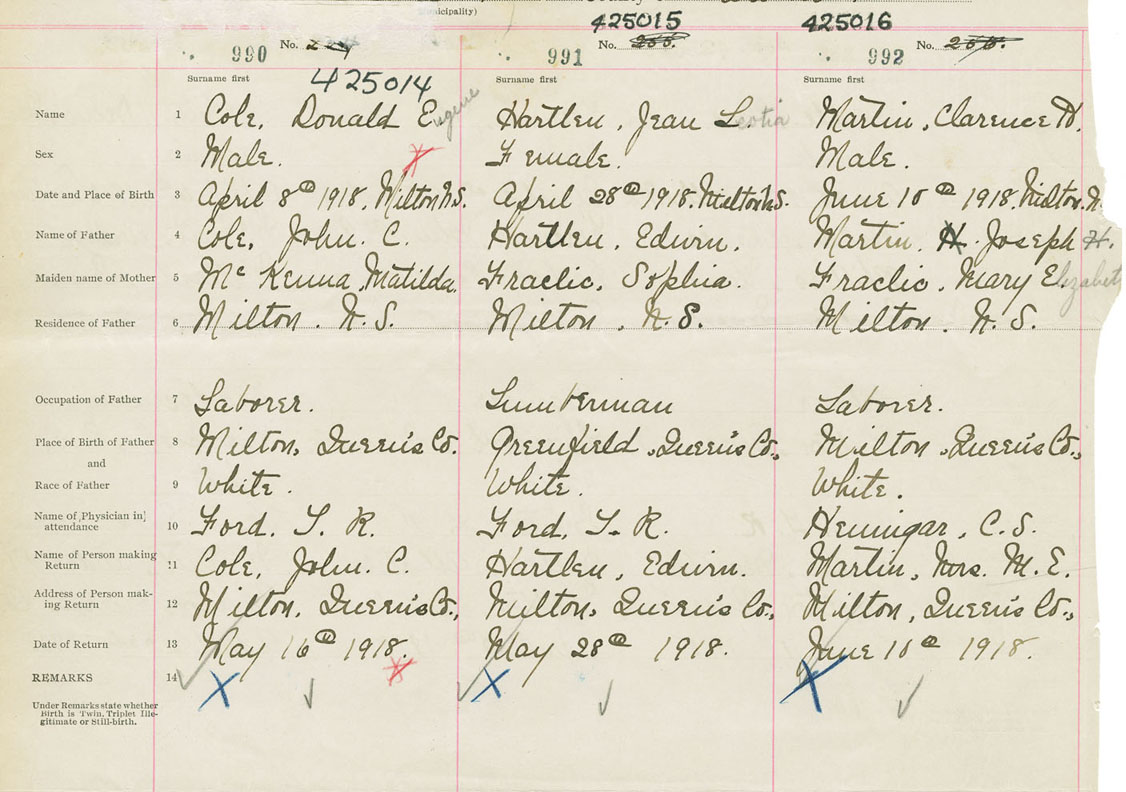 nicipality)
425015 425016
990 No. 991 No. 992 No.
Surname first Surname first Surname first
425014
Name 1 Cole, Donald Eugene Hartlen, Jean Leotia Martin, Clarence H.
Sex 2 Male. Female. Male.
Date and Place of Birth 3 April 8th 1918, Milton N.S. April 28th 1918. Milton N.S. June 10th 1918. Milton. N.
Name of Father 4 Cole, John. C. Hartlen, Edwin. Martin, H. Joseph H.
Maiden name of Mother 5 Mc Kenna, Matilda. Fraelic, Sophia. Fraelic, Mary Elizabeth
Residence of Father 6 Milton. N.S. Milton, N.S. Milton. N.S.
Occupation of Father 7 Laborer. Lumberman Laborer.
Place of Birth of Father 8 Milton, Queen's Co. Greenfield, Queen's Co., Milton, Queen's Co.,
and
Race of Father 9 White. White. White.
Name of Physician in attendance 10 Ford, T. R. Ford, T. R. Hennigar, C. S.
Name of Person making Return 11 Cole, John. C. Hartlen, Edwin. Martin, Mrs. M. E.
Address of Person mak-ing Return 12 Milton, Queen's Co., Milton, Queen's Co., Milton, Queen's Co.,
Date of Return 13 May 16th 1918. May 28th 1918. June 10th 1918.
REMARKS 14
Under Remarks state whether
Birth is Twin, Triplet Ille-
gitimate or Still-birth.